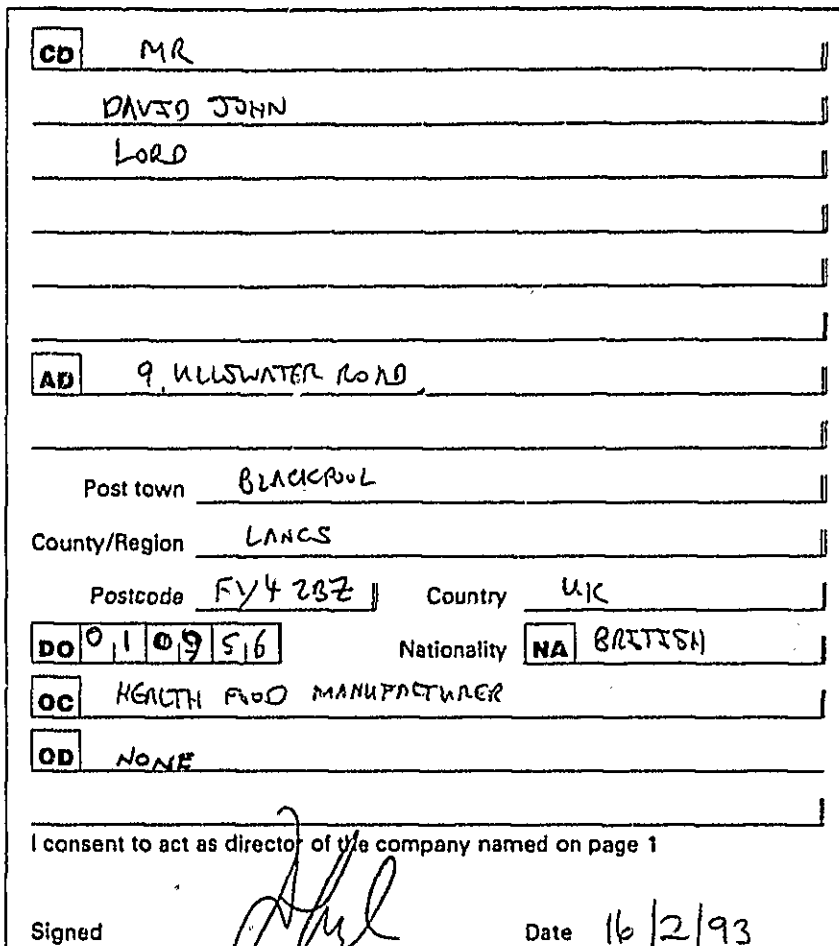 CD MR
DAVID JOHN
LORD
AD 9, ULLSWATER ROAD,
Post town BLACKPOOL
County/Region LANCS
Postcode FY4 2BZ Country UK
DO 01 09 56 Nationality NA BRITISH
OC HEALTH FOOD MANUFACTURER
OD NONE
I consent to act as director of the company named on page 1
Signed Date 16/2/93